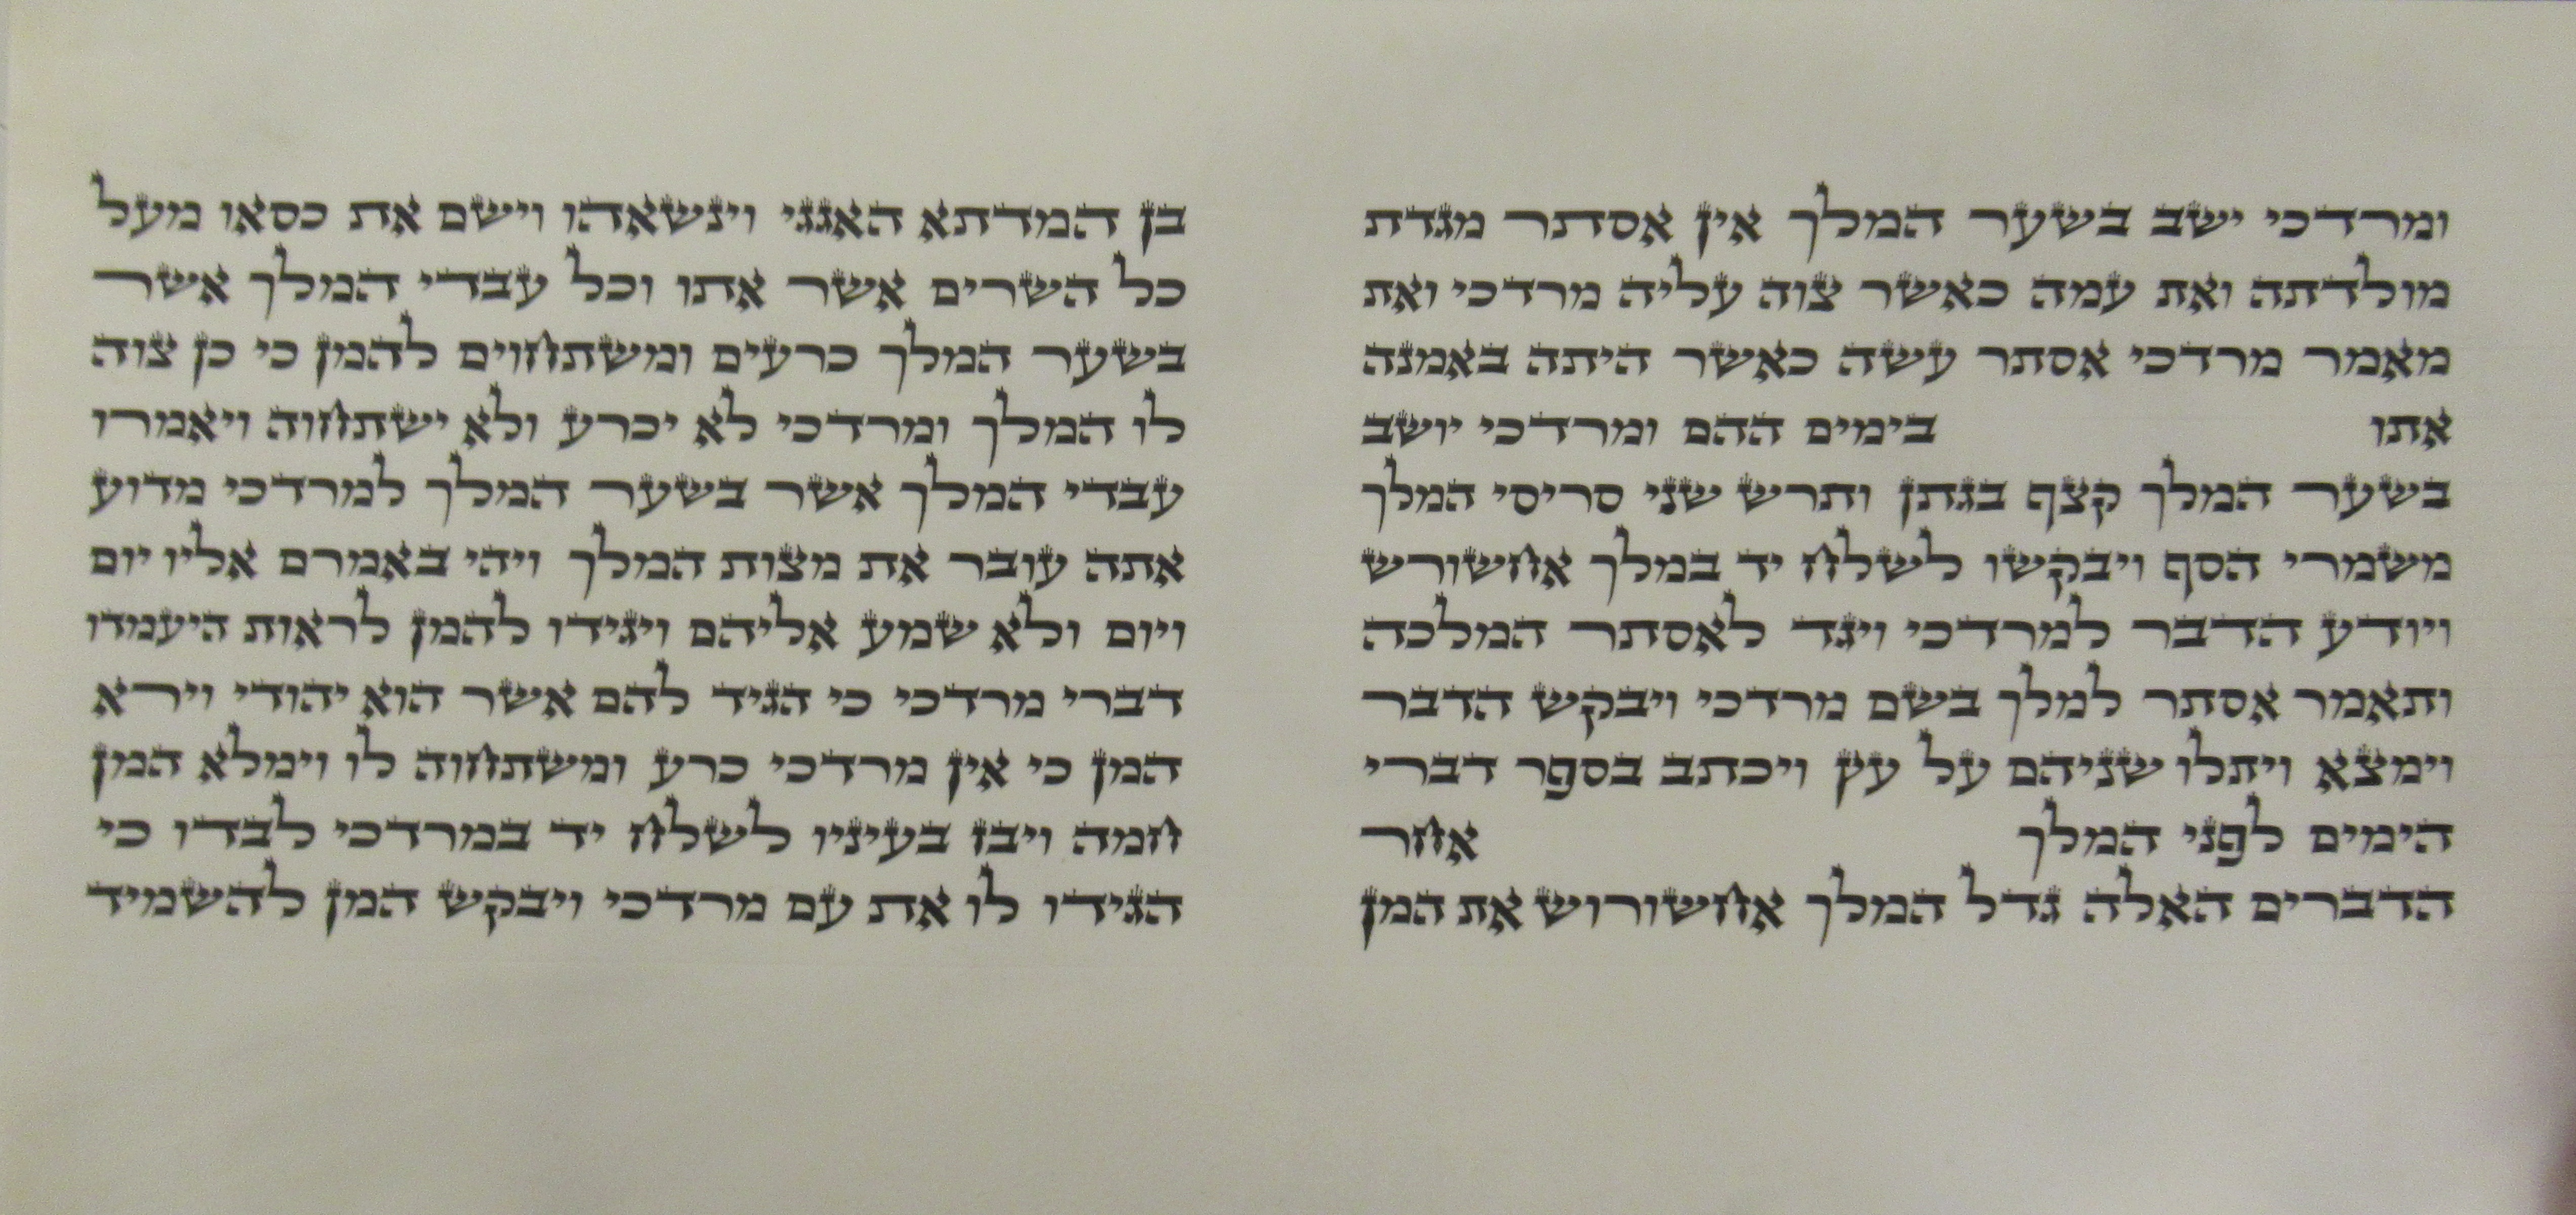 ומרדכי ישב בשער המלך אין אסתר מגדת
מולדתה ואת עמה כאשר צוה עליה מרדכי ואת
מאמר מרדכי אסתר עשה כאשר היתה באמנה
אתו בימים ההם ומרדכי יושב
בשער המלך קצף בגתן ותרש שני סריסי המלך
משמרי הסף ויבקשו לשלח יד במלך אחשורש
ויודע הדבר למרדכי ויגד לאסתר המלכה
ותאמר אסתר למלך בשם מרדכי ויבקש הדבר
וימצא ויתלו שניהם על עץ ויכתב בספר דברי
הימים לפני המלך אחר
הדברים האלה גדל המלך אחשורוש את המן
בן המדתא האגגי וינשאהו וישם את כסאו מעל
כל השרים אשר אתו וכל עבדי המלך אשר
בשער המלך כרעים ומשתחוים להמן כי כן צוה
לו המלך ומרדכי לא יכרע ולא ישתחוה ויאמרו
עבדי המלך אשר בשער המלך למרדכי מדוע
אתה עובר את מצות המלך ויהי באמרם אליו יום
ויום ולא שמע אליהם ויגידו להמן לראות היעמדו
דברי מרדכי כי הגיד להם אשר הוא יהודי וירא
המן כי אין מרדכי כרע ומשתחוה לו וימלא המן
חמה ויבז בעיניו לשלח יד במרדכי לבדו כי
הגידו לו את עם מרדכי ויבקש המן להשמיד